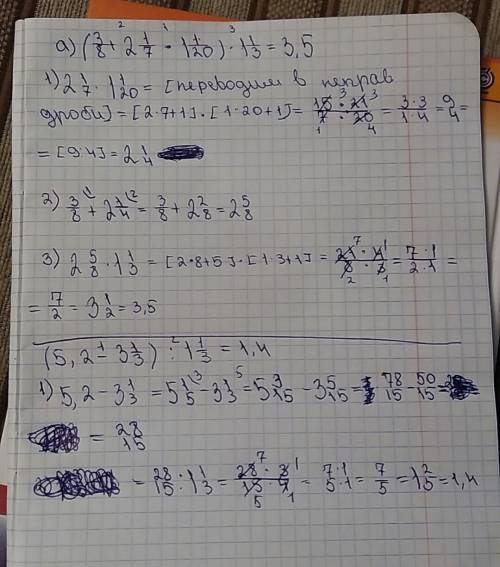 а) (3/8 + 2 1/7 · 1 1/20) · 1 1/3 = 3,5
1) 2 1/7 · 1 1/20 = [переводим в неправ
дроби] = [2·7+1] · [1·20+1] = 15·21/7·20 = 3·3/1·4 = 9/4 =
= [9:4] = 2 1/4
2) 3/8 + 2 1/4 = 3/8 + 2 2/8 = 2 5/8
3) 2 5/8 · 1 1/3 = [2·8+5] · [1·3+1] = 21·4/8·3 = 7·1/2·1 =
= 7/2 = 3 1/2 = 3,5
(5,2 - 3 1/3) : 1 1/3 = 1,4
1) 5,2 - 3 1/3 = 5 1/5 - 3 1/3 = 5 3/15 - 3 5/15 = 78/15 - 50/15 =
= 28/15
= 28/15 : 1 1/3 = 28·3/15·4 = 7·1/5·1 = 7/5 = 1 2/5 = 1,4